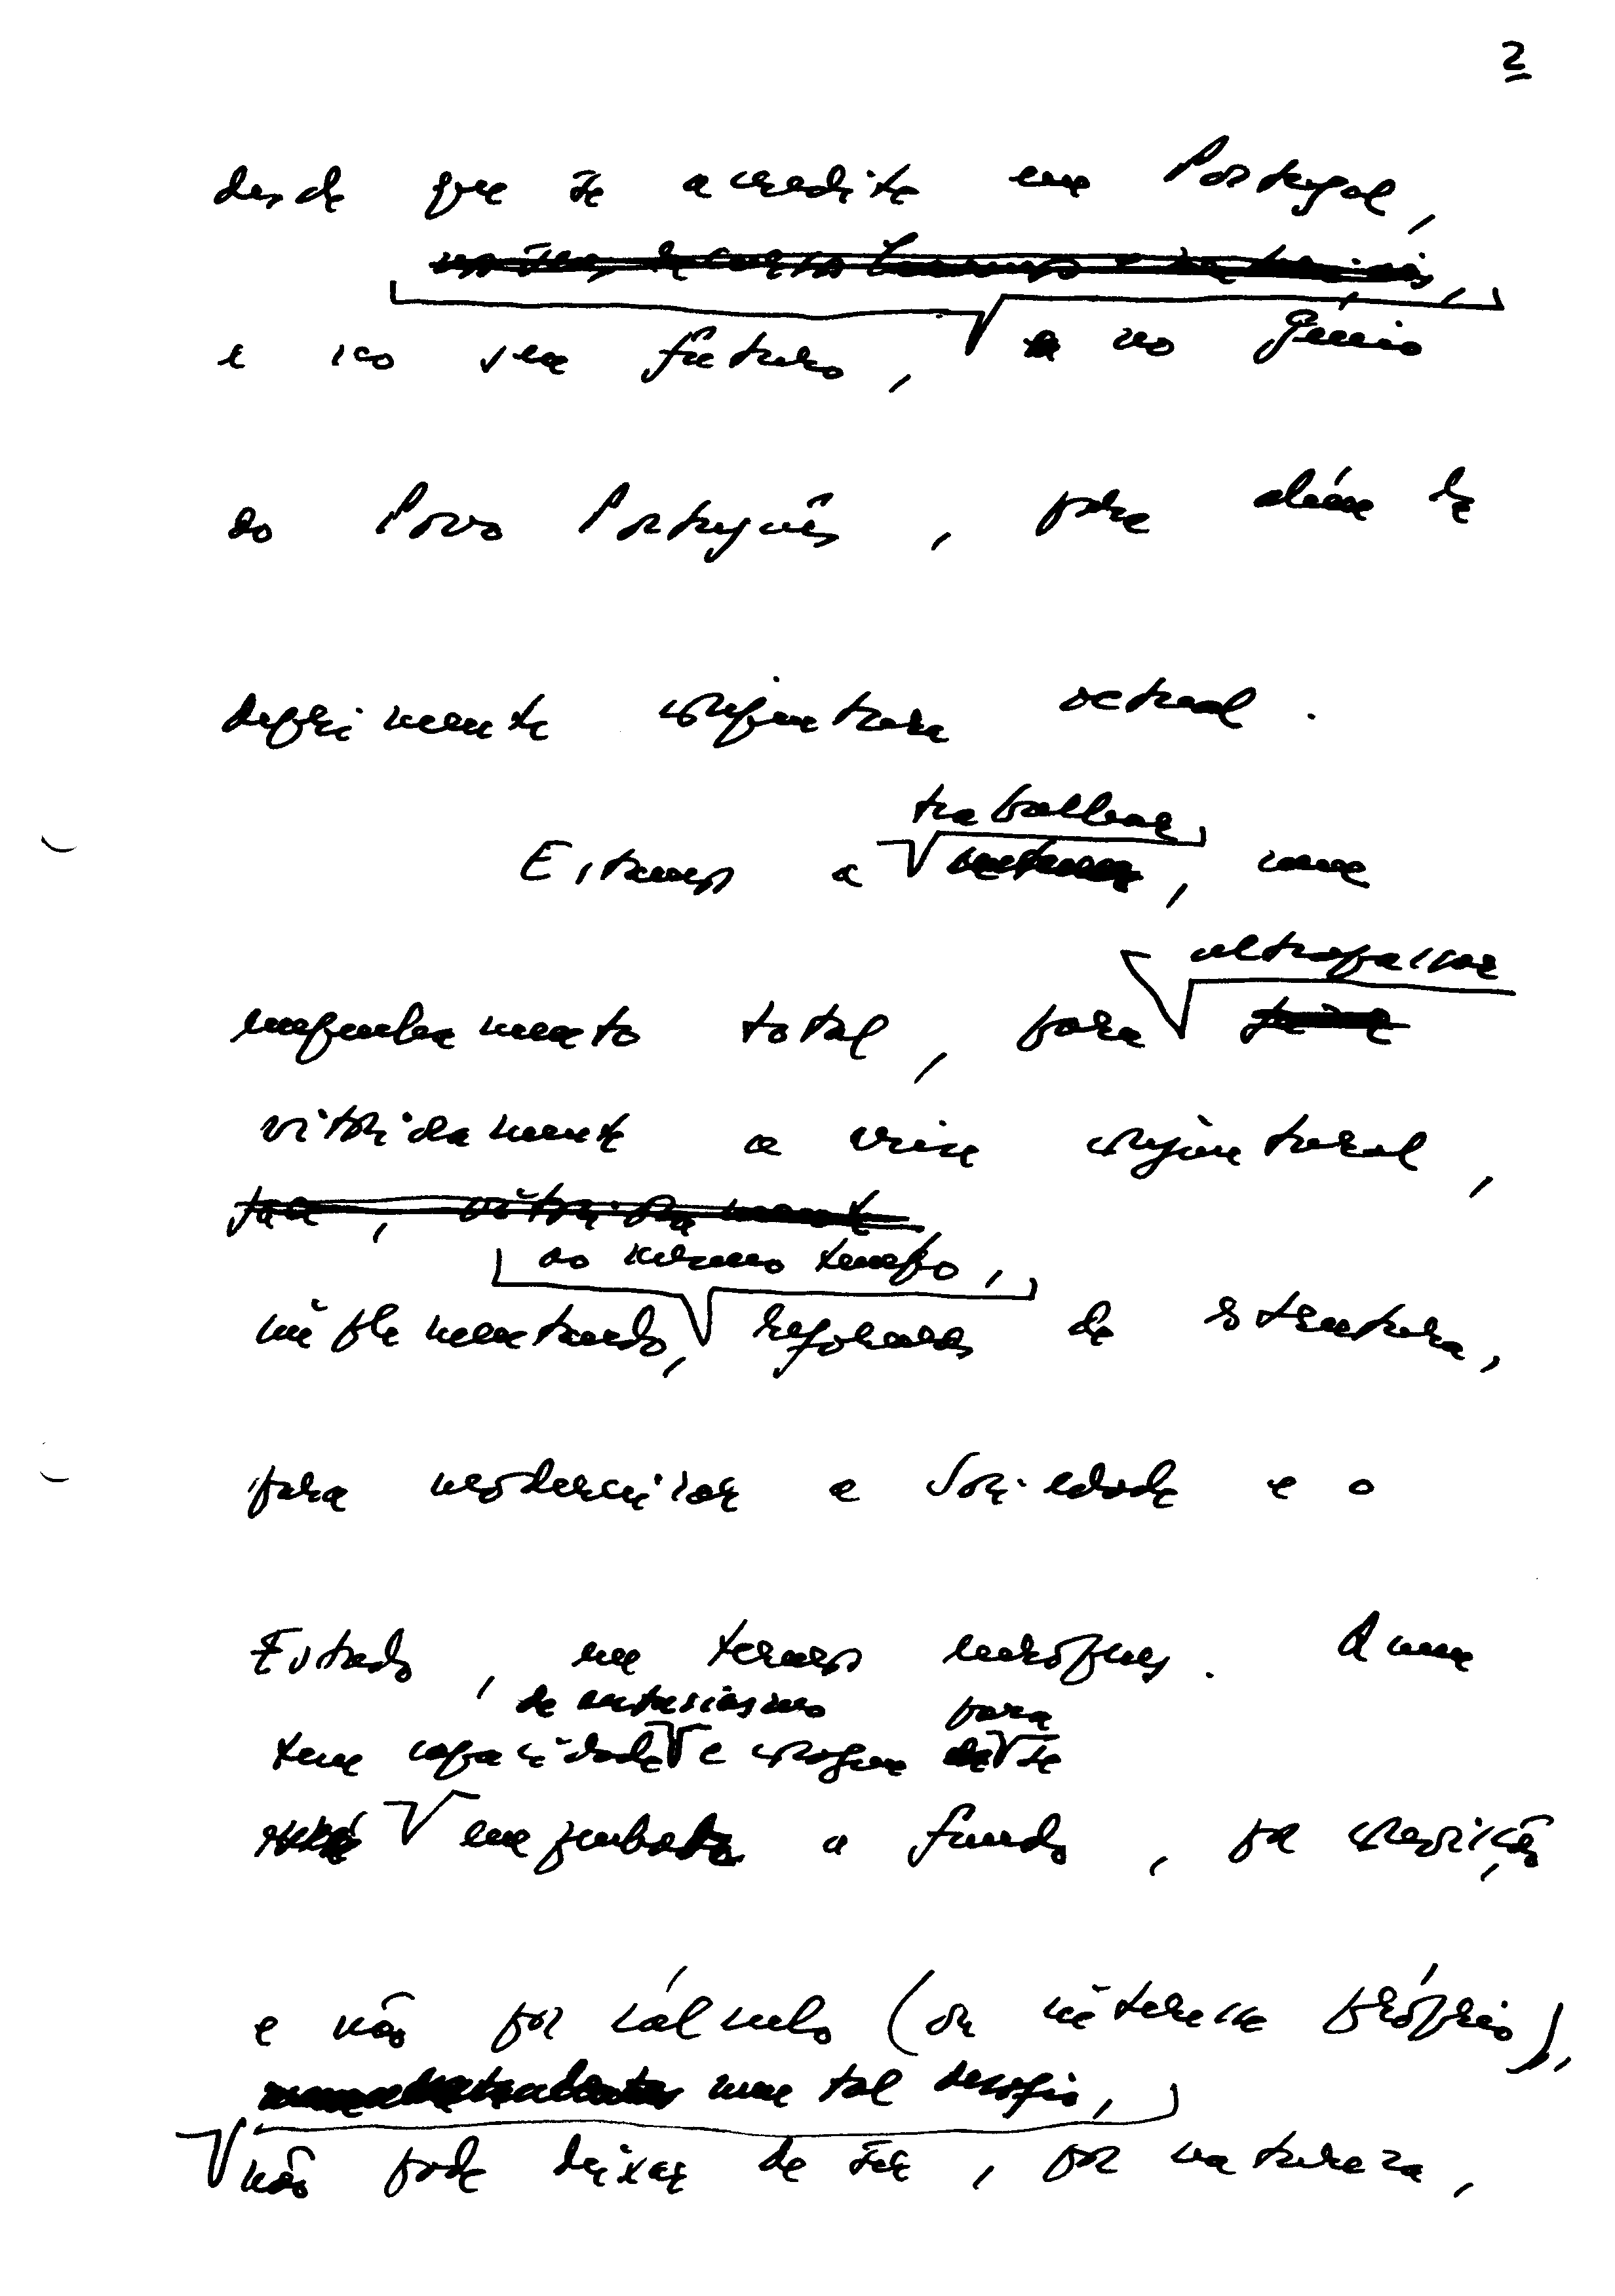 2
desde que se acredite em Portugal,
e no seu futuro, no génio
do Povo Português, para além da
deprimente conjuntura actual.
trabalhar
Estamos a, com
ultrapassar
empenhamento total, para
vitoriosamente a crise conjuntural,
ao mesmo tempo,
implementando, reformas de estrutura,
para modernizar a Sociedade e o
Estado, em termos europeus. A
de entusiasmo para
tem capacidade e coragem se
a fundo, por convicção
e não por cálculo (ou interesse próprio),
num tal desafio,
não pode deixar de ser, por natureza,